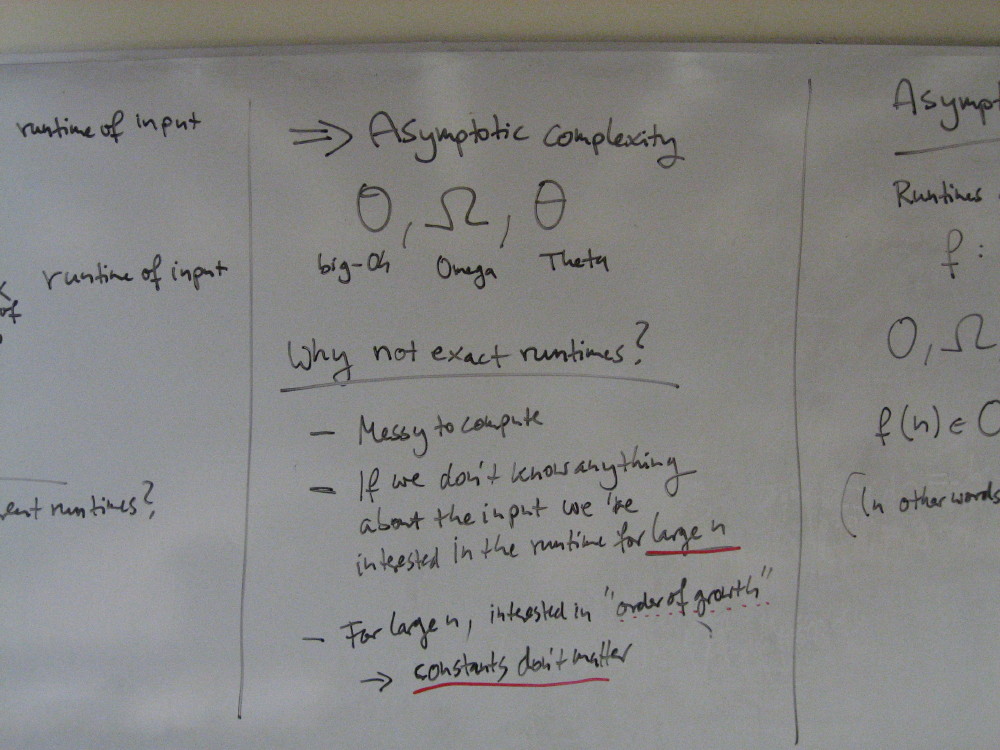 runtime of input
runtime of input
of
runtimes?
⇒ Asymptotic complexity
O, Ω, Θ
big-Oh Omega Theta
Why not exact runtimes?
- Messy to compute
- If we don't know anything
about the input we're
intersted in the runtime for large n
- For large n, intersted in "order of growth"
→ constants don't matter
Asympt
Runtimes
f :
O, Ω
f(n) ∈ O
(In other words